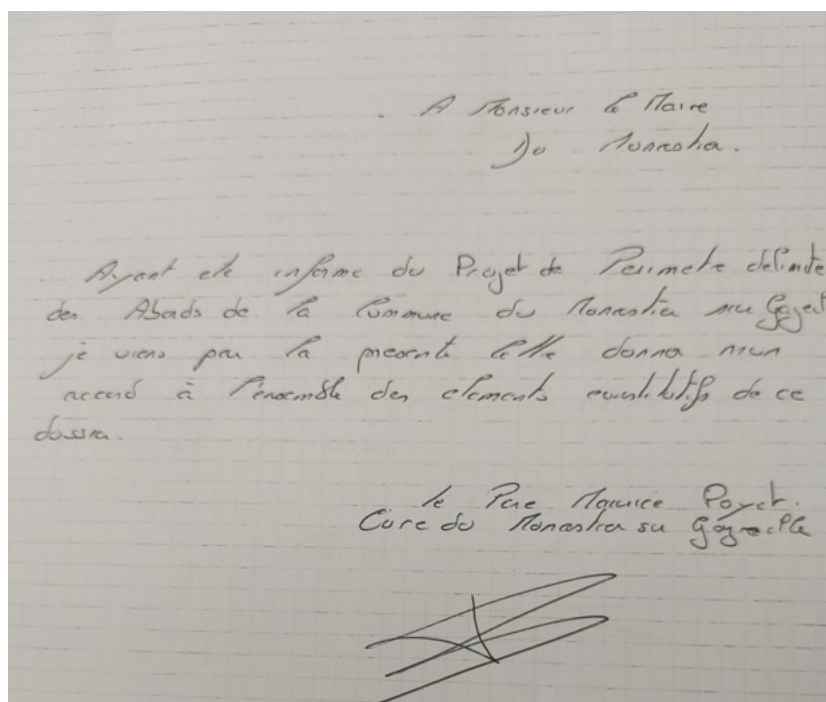 A Monsieur le Maire
Du Monastier.
Ayant ete informe du Projet de Perimetre délimite
des Abords de la Commune du Monastier sur Gazeil
je viens par la presente lettre donner mon
accord à l'ensemble des elements constitutifs de ce
dossier.
le Pere Maurice Poyet.
Cure du Monastier sur Gazeille